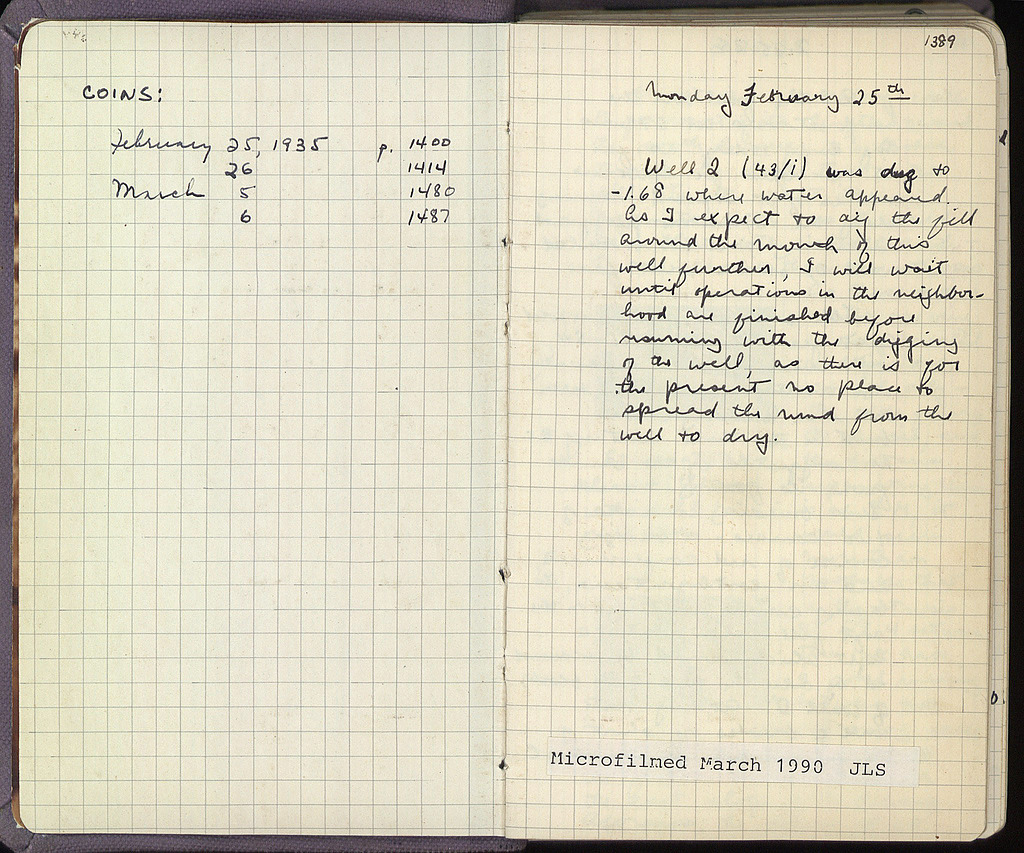 COINS:
February 25, 1935 p. 1400
26 1414
March 5 1480
6 1487
1389
Monday February 25th
Well 2 (43/i) was dug to
-1.68 where water appeared.
As I expect to dig the fill
around the mouth of this
well further, I will wait
until operations in the neighbor-
hood are finished before
resuming with the digging
of the well, as there is for
the present no place to
spread the mud from the
well to dry.
Microfilmed March 1990 JLS